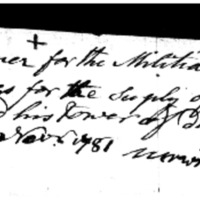 +
ner for the Militia
s for the Supply o
his Tower of B
Novr. 1781